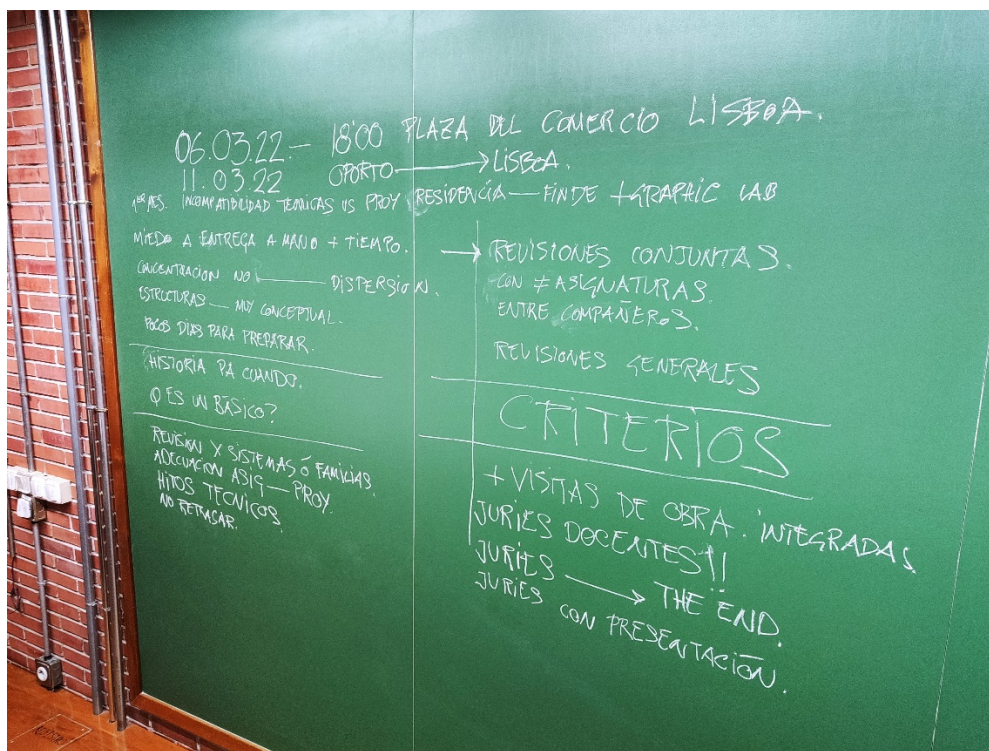 06.03.22.— 18'00 PLAZA DEL COMERCIO LISBOA.
11.03.22 OPORTO → LISBOA.
1ER MES. INCOMPATIBILIDAD TECNICAS VS PROY RESIDENCIA — FINDE + GRAPHIC LAB
MIEDO A ENTREGA A MANO + TIEMPO.
CONCENTRACION NO — DISPERSION.
ESTRUCTURAS — MUY CONCEPTUAL.
POCOS DIAS PARA PREPARAR.
HISTORIA PA CUANDO.
Q ES UN BÁSICO?
REVISION X SISTEMAS Ó FAMILIAS.
ADECUACION ASIG — PROY.
HITOS TECNICOS.
NO RETRASAR.
→ REVISIONES CONJUNTAS.
CON ≠ ASIGNATURAS.
ENTRE COMPAÑEROS.
REVISIONES GENERALES
CRITERIOS
+ VISITAS DE OBRA. INTEGRADAS.
JURIES DOCENTES!!
JURIES → THE END.
JURIES CON PRESENTACIÓN.